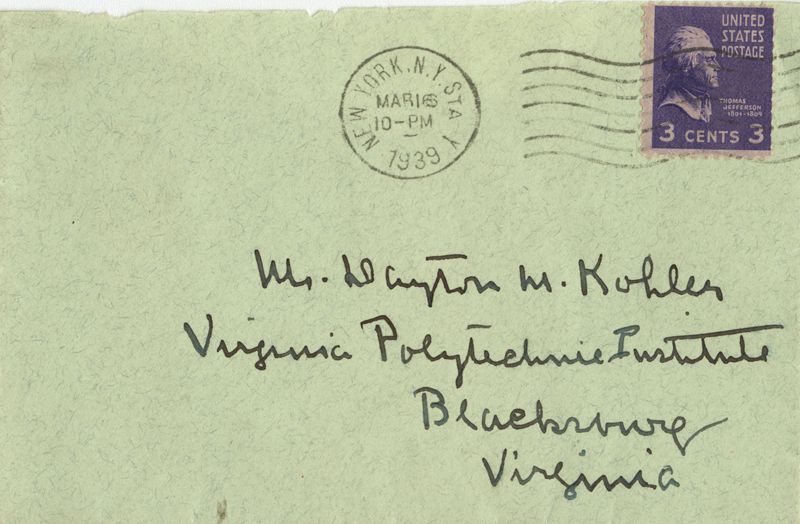 NEW YORK, N.Y. STA Y
MAR 16
10-PM
1939
UNITED
STATES
POSTAGE
THOMAS
JEFFERSON
1801-1809
3 CENTS 3
Mr. Dayton M. Kohler
Virginia Polytechnic Institute
Blacksburg
Virginia